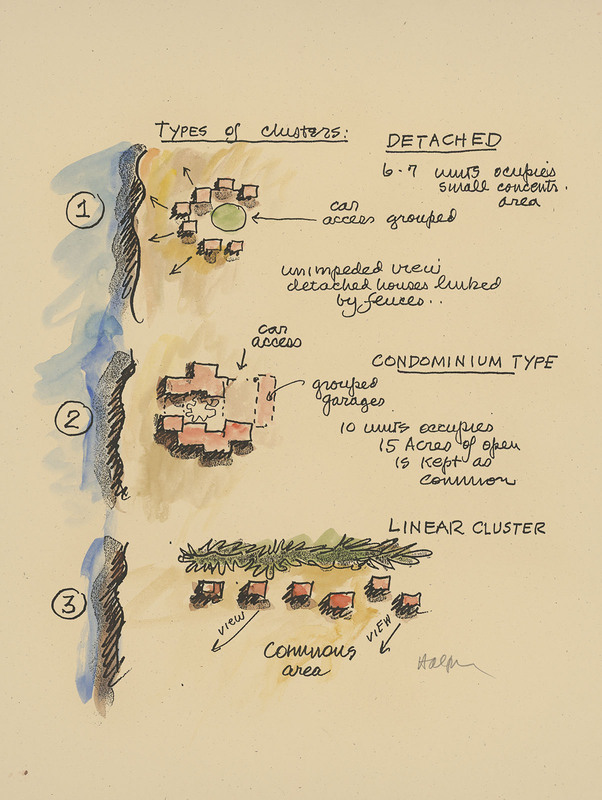 Types of clusters:
DETACHED
6-7 units ocupies
small concentr.
area
1
car
access grouped
unimpeded view
detached houses linked
by fences..
car
access
CONDOMINIUM TYPE
grouped
garages
2
10 units occupies
15 Acres of open
is kept as
common
LINEAR CLUSTER
3
view
VIEW
Commons
area
Halprin